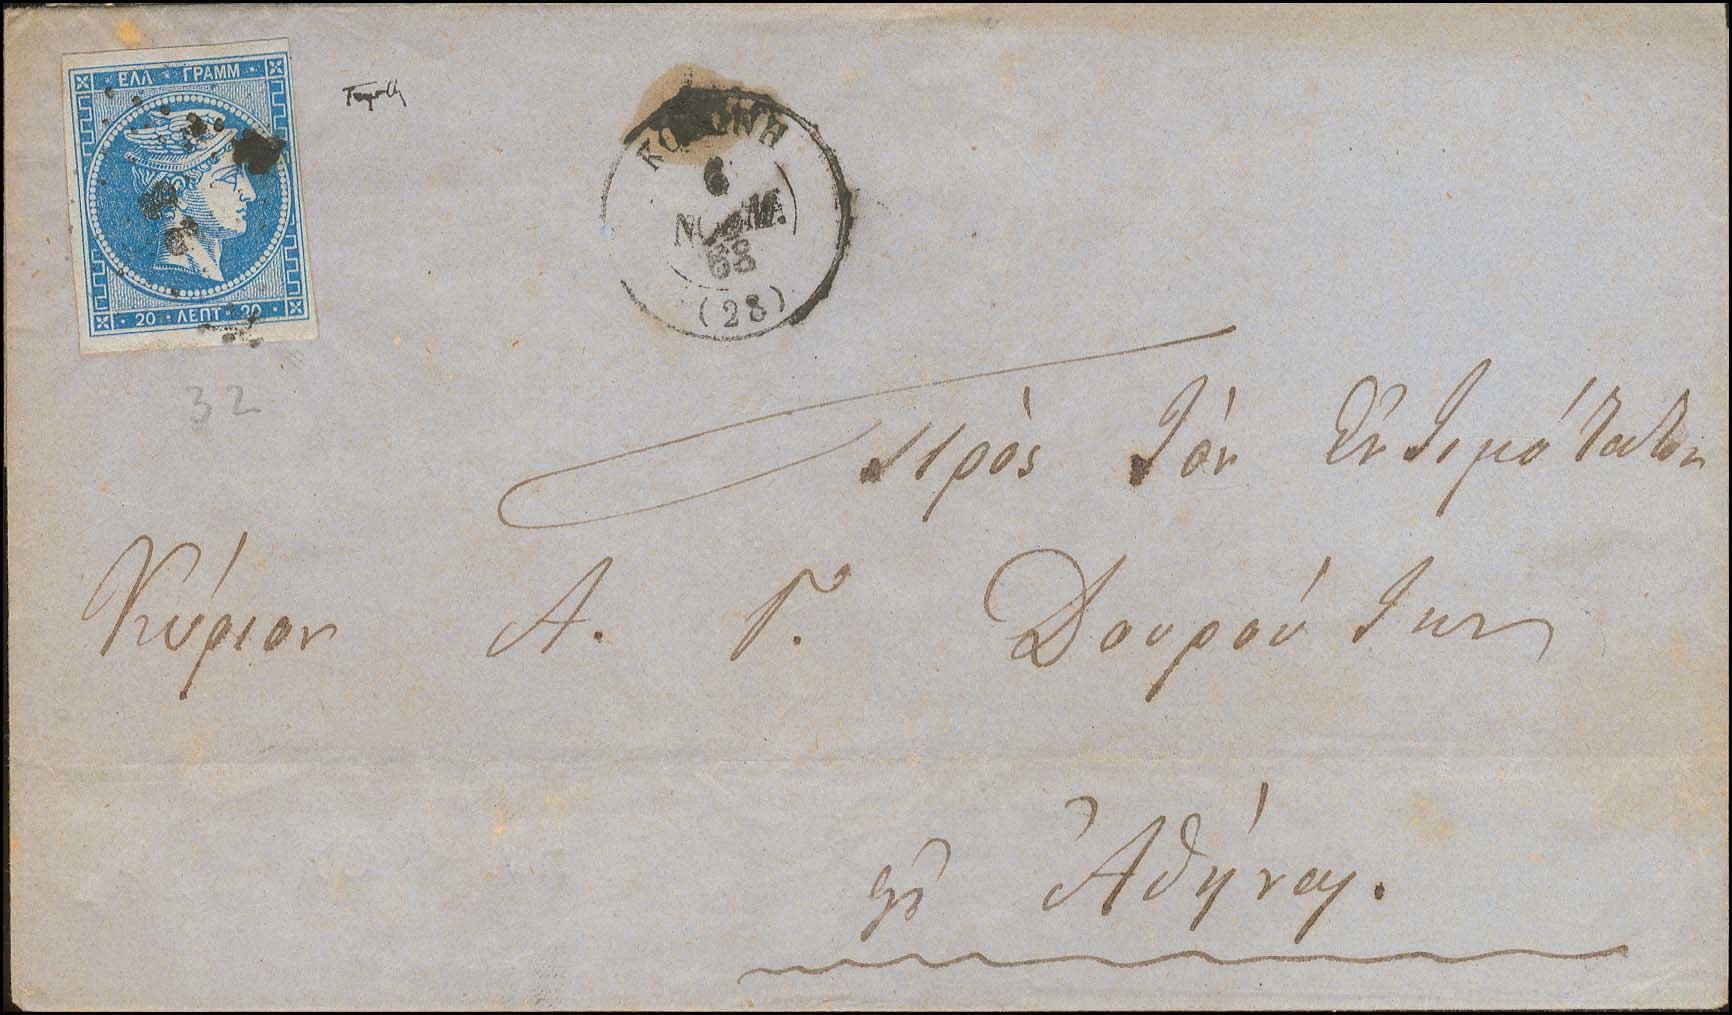 ΕΛΛ · ΓΡΑΜΜ
20 · ΛΕΠΤ · 20
ΚΟΡΩΝΗ
6
ΝΟΕΜ.
68
(28)
32
Πρὸς Τὸν Ἐντιμότατον
Κύριον Α. Γ. Δουρούτην
εἰς Ἀθήνας.